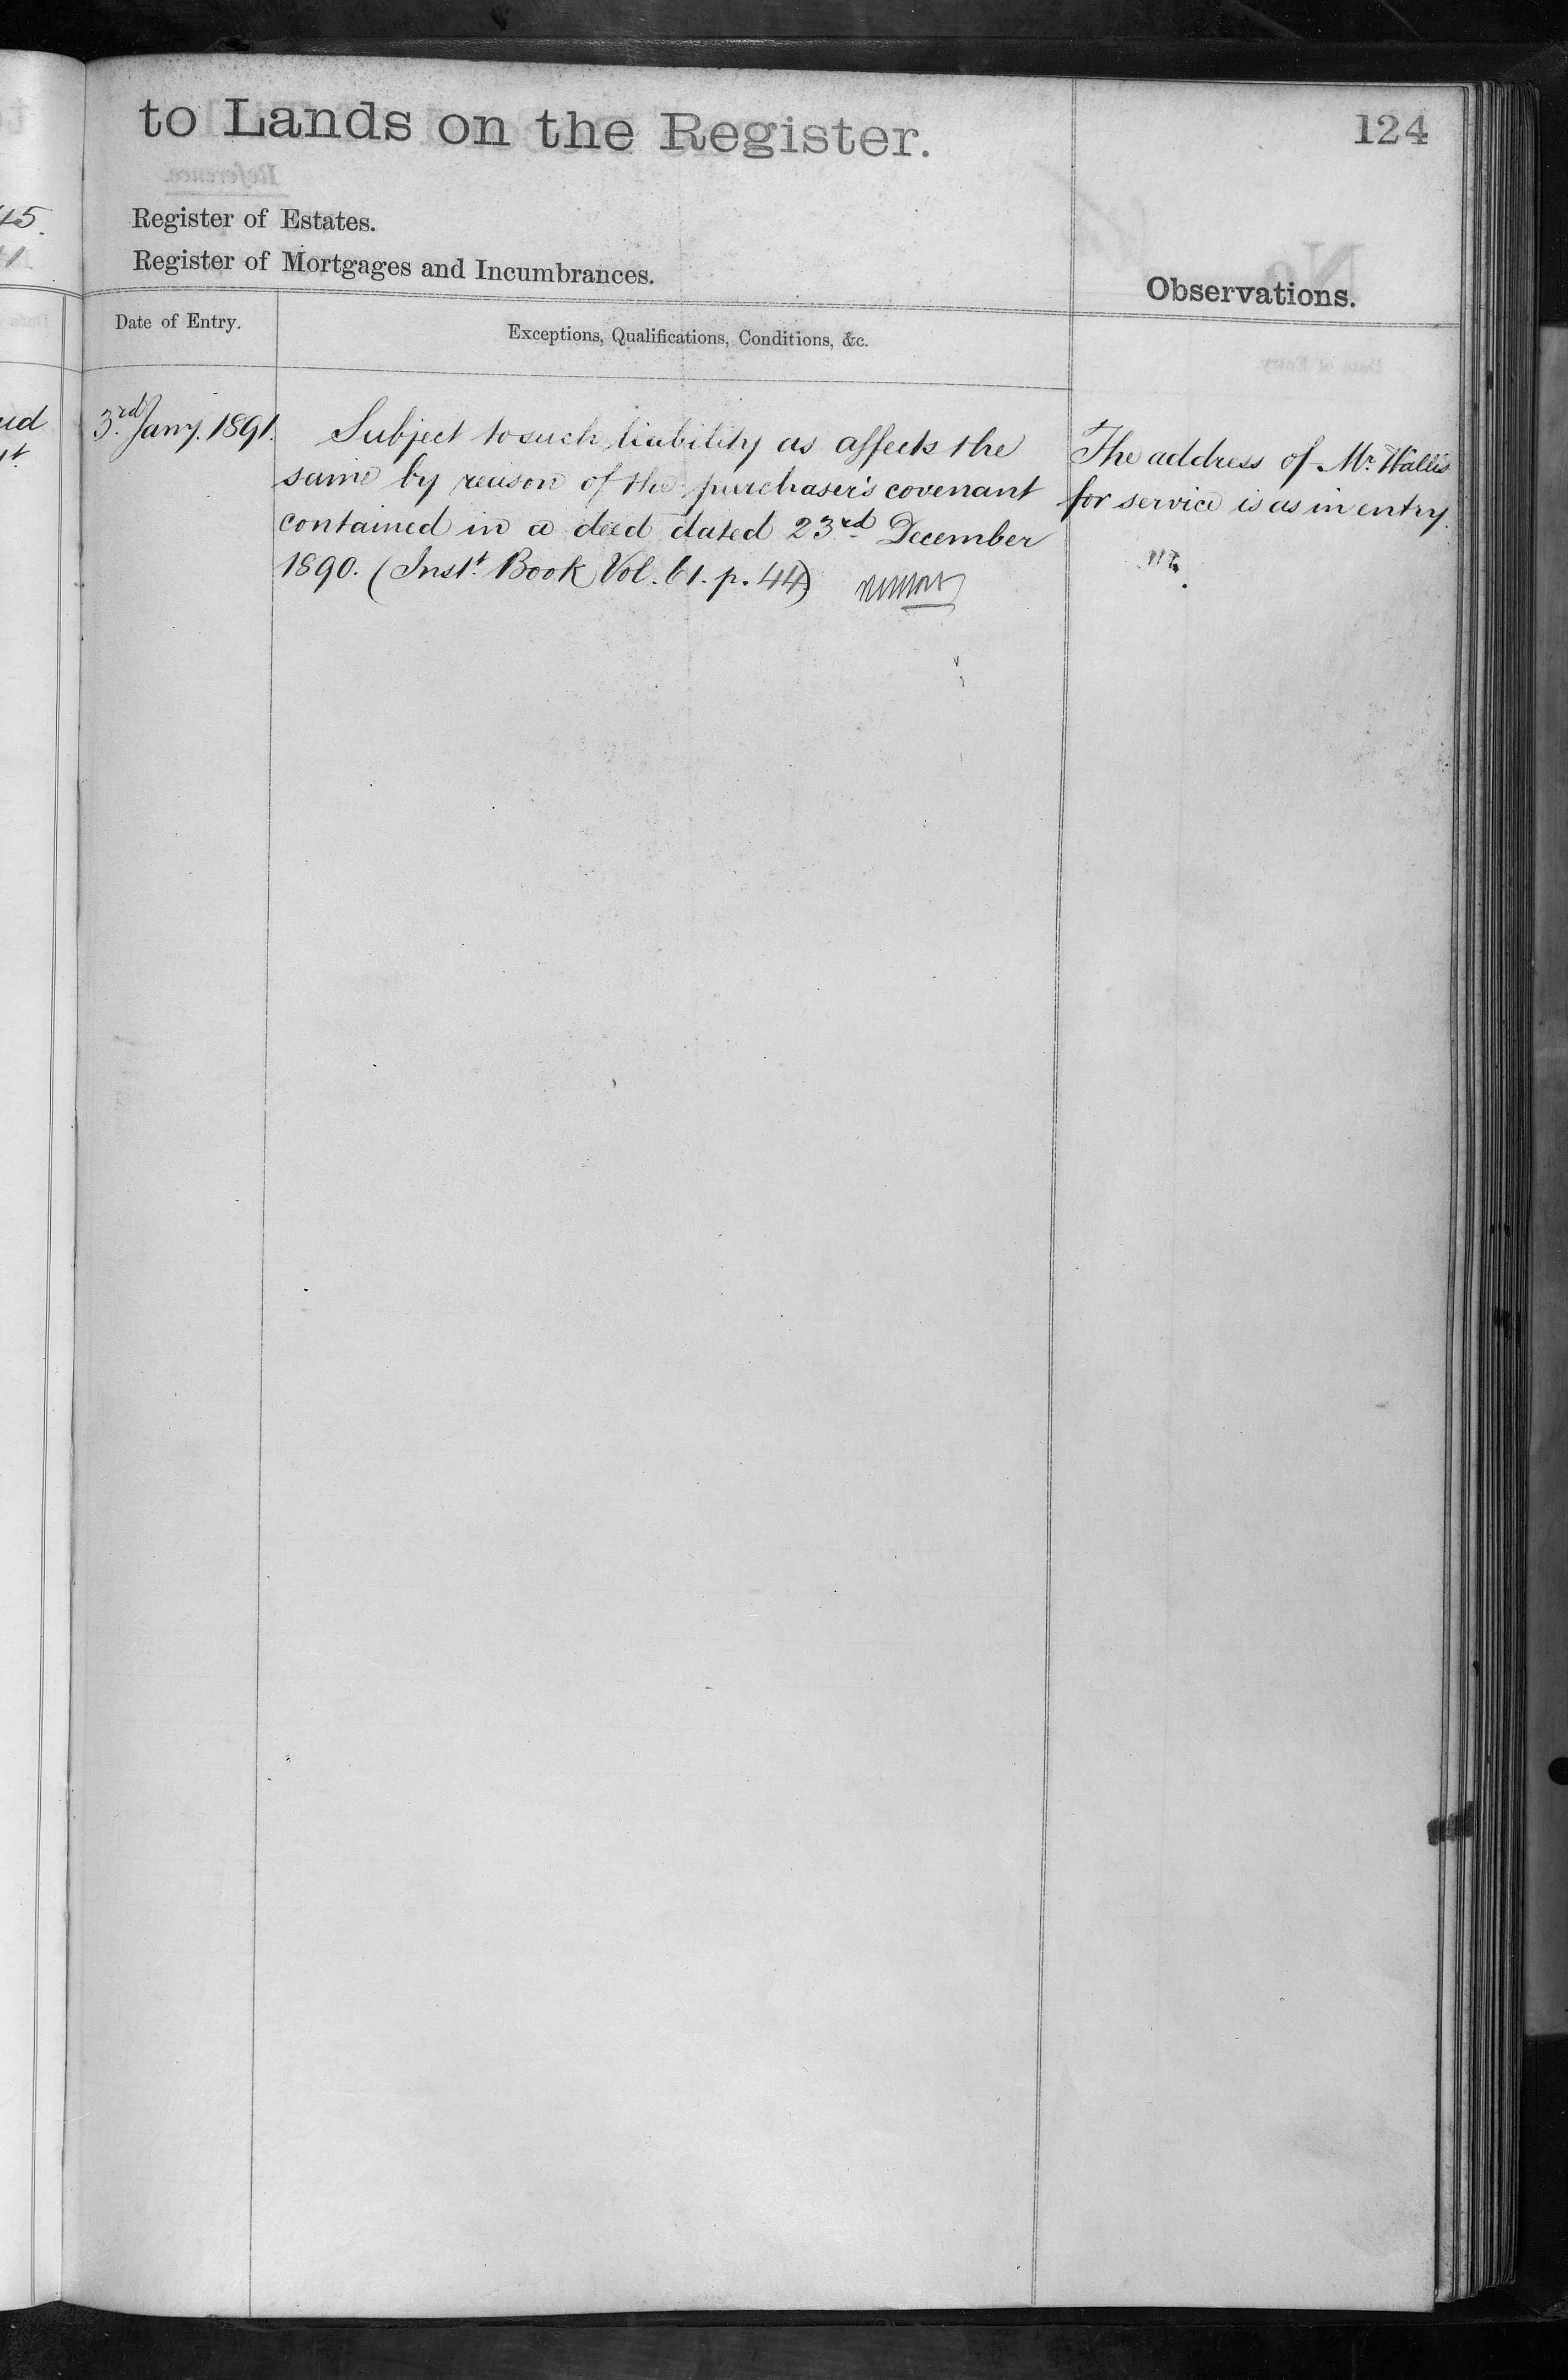 to Lands on the Register.
124
Register of Estates.
Register of Mortgages and Incumbrances.
Observations.
Date of Entry.
Exceptions, Qualifications, Conditions, &c.
3rd Jany. 1891.
Subject to such liability as affects the
same by reason of the purchaser's covenant
contained in a deed dated 23rd December
1890. (Inst. Book Vol. 61. p. 44)
The address of Mr. Wallis
for service is as in entry.
45.